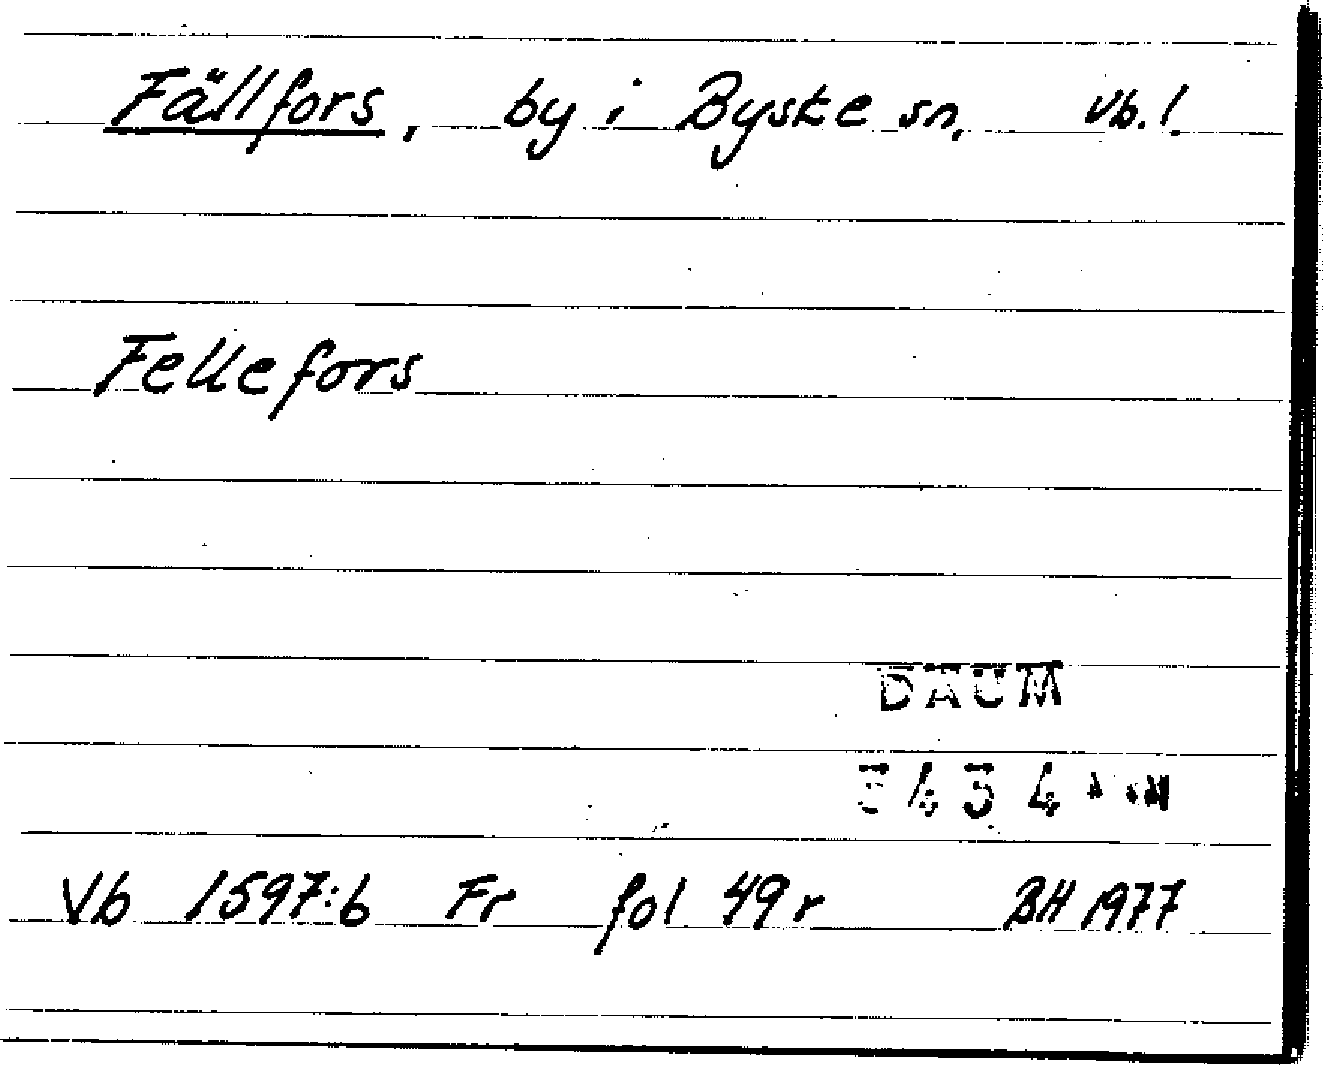 Fällfors, by i Byske sn, Vb. l.
Fellefors
DAUM
3434
Vb 1597:6 Fr fol 49 r BH 1977